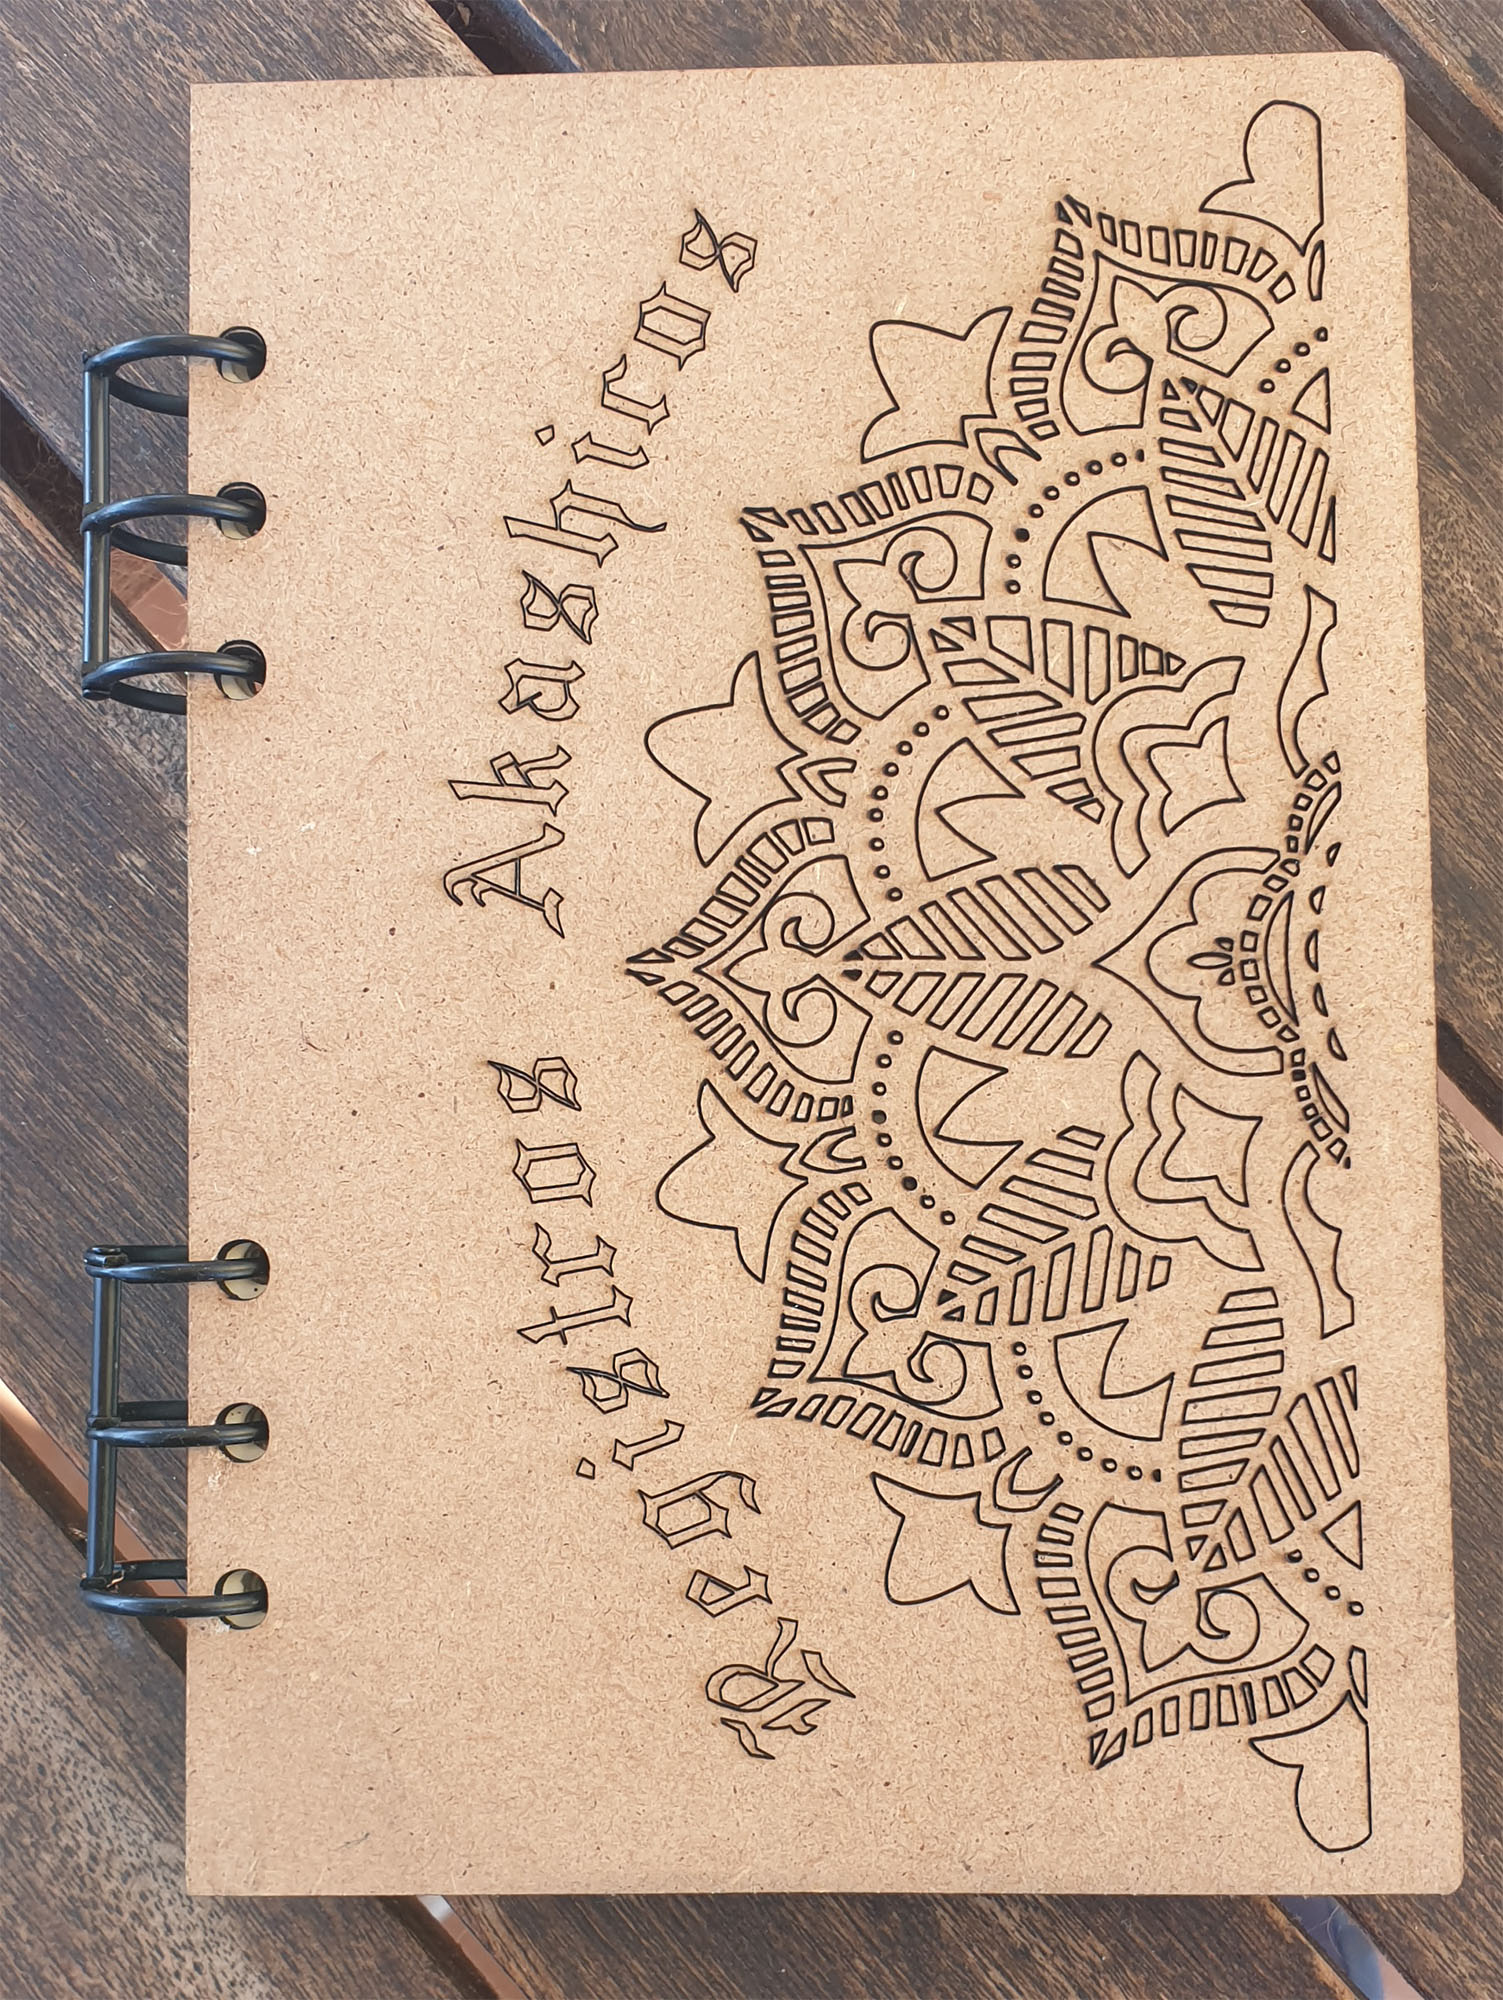 Registros Akashicos